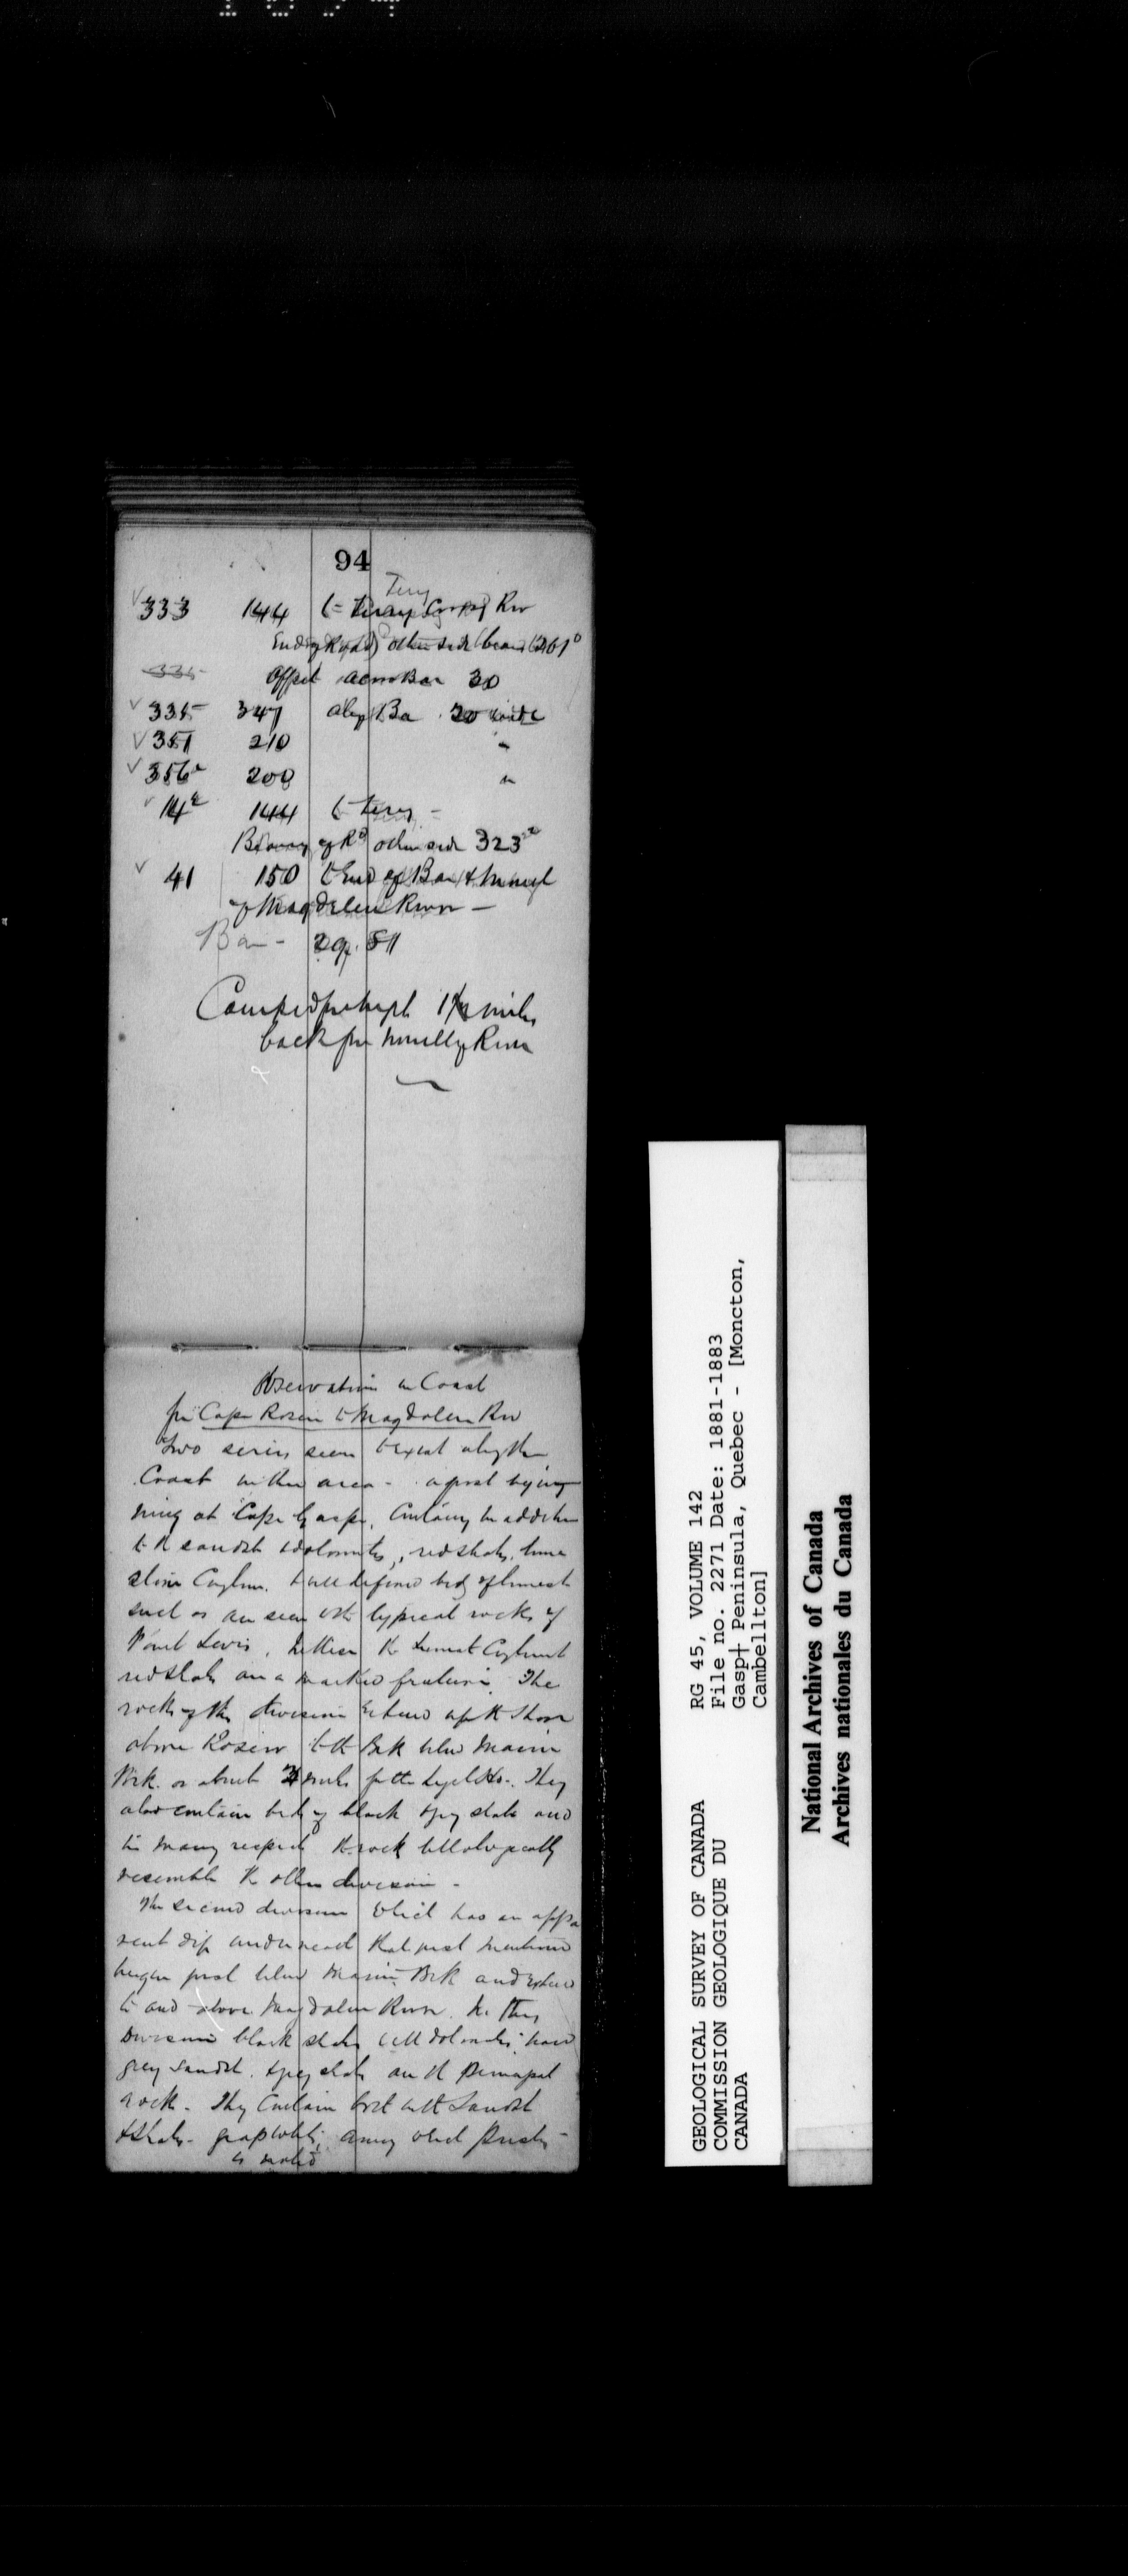 94
Ferry
333 144 to Ferry Crossg Riv
End of Road other side bears 261°
335 Offset across Bar 30
335 347 along Bar 20 wide
351 210 "
356 200 "
14 144 to Ferry -
Bearing of Rd other side 323
41 150 to End of Bar & Mouth
of Magdalen River -
Bar -
Camped 1½ miles
back from mouth of River
Observations on Coast
fm Cape Rosier to Magdalen Riv
Two series seem to exist along the
Coast in this area - a first begin
ning at Cape Gaspe, Containg in addition
to the sandst & dolomites, red shales, lime
stone Conglom. & well defined beds of limest
such as are seen in the typical rocks of
Point Levis, In these the Limest Conglom &
red shales are a marked feature. The
rocks of this division Extend up the Shore
above Rosier to the Brk below Marin
Brk. or about 3 miles They
also contain beds of black & grey shale and
in many respects the rock lithologically
resemble the other division -
The second division which has an appa
rent dip underneath that just mentioned
began just below Marin Brk and extend
to and above Magdalen River. In this
Division black shales with dolomites, hard
grey sandst. & grey shales are the Principal
rock - They Contain both in the Sandst
& shales - graptolites, among which
is noted
GEOLOGICAL SURVEY OF CANADA
COMMISSION GEOLOGIQUE DU
CANADA
RG 45, VOLUME 142
File no. 2271 Date: 1881-1883
Gasp† Peninsula, Quebec - [Moncton,
Cambellton]
National Archives of Canada
Archives nationales du Canada